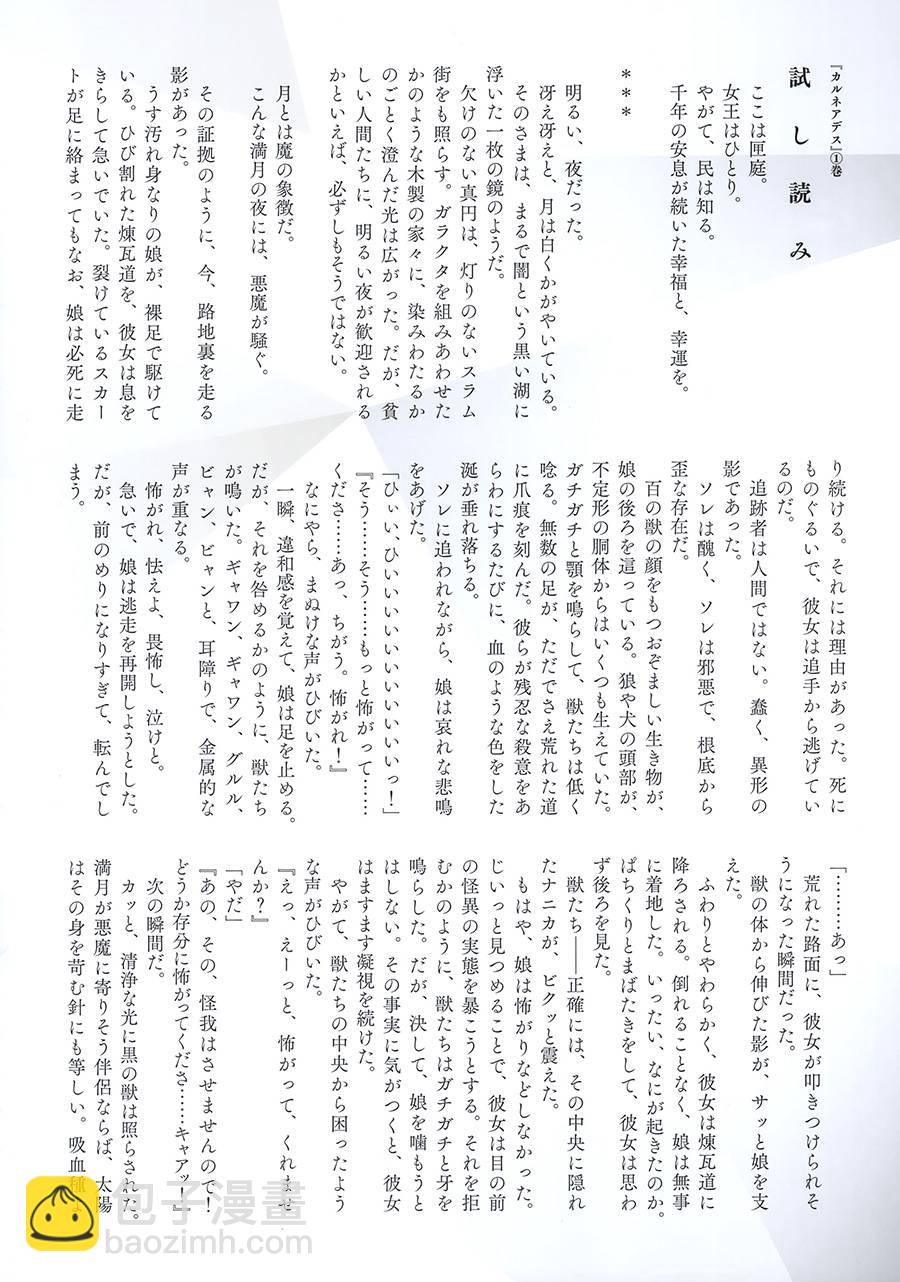 『カルネアデス』①巻
試し読み
ここは匣庭。
女王はひとり。
やがて、民は知る。
千年の安息が続いた幸福と、幸運を。
＊＊＊
明るい、夜だった。
冴え冴えと、月は白くかがやいている。
そのさまは、まるで闇という黒い湖に
浮いた一枚の鏡のようだ。
欠けのない真円は、灯りのないスラム
街をも照らす。ガラクタを組みあわせた
かのような木製の家々に、染みわたるか
のごとく澄んだ光は広がった。だが、貧
しい人間たちに、明るい夜が歓迎される
かといえば、必ずしもそうではない。
月とは魔の象徴だ。
こんな満月の夜には、悪魔が騒ぐ。
その証拠のように、今、路地裏を走る
影があった。
うす汚れ身なりの娘が、裸足で駆けて
いる。ひび割れた煉瓦道を、彼女は息を
きらして急いでいた。裂けているスカー
トが足に絡まってもなお、娘は必死に走
り続ける。それには理由があった。死に
ものぐるいで、彼女は追手から逃げてい
るのだ。
追跡者は人間ではない。蠢く、異形の
影であった。
ソレは醜く、ソレは邪悪で、根底から
歪な存在だ。
百の獣の顔をもつおぞましい生き物が、
娘の後ろを這っている。狼や犬の頭部が、
不定形の胴体からはいくつも生えていた。
ガチガチと顎を鳴らして、獣たちは低く
唸る。無数の足が、ただでさえ荒れた道
に爪痕を刻んだ。彼らが残忍な殺意をあ
らわにするたびに、血のような色をした
涎が垂れ落ちる。
ソレに追われながら、娘は哀れな悲鳴
をあげた。
「ひぃい、ひいいいいいいいいいいっ！」
『そう……そう……もっと怖がって……
くださ……あっ、ちがう。怖がれ！』
なにやら、まぬけな声がひびいた。
一瞬、違和感を覚えて、娘は足を止める。
だが、それを咎めるかのように、獣たち
が鳴いた。ギャワン、ギャワン、グルル、
ビャン、ビャンと、耳障りで、金属的な
声が重なる。
怖がれ、怯えよ、畏怖し、泣けと。
急いで、娘は逃走を再開しようとした。
だが、前のめりになりすぎて、転んでし
まう。
「………あっ」
荒れた路面に、彼女が叩きつけられそ
うになった瞬間だった。
獣の体から伸びた影が、サッと娘を支
えた。
ふわりとやわらかく、彼女は煉瓦道に
降ろされる。倒れることなく、娘は無事
に着地した。いったい、なにが起きたのか。
ぱちくりとまばたきをして、彼女は思わ
ず後ろを見た。
獣たち――正確には、その中央に隠れ
たナニカが、ビクッと震えた。
もはや、娘は怖がりなどしなかった。
じいっと見つめることで、彼女は目の前
の怪異の実態を暴こうとする。それを拒
むかのように、獣たちはガチガチと牙を
鳴らした。だが、決して、娘を噛もうと
はしない。その事実に気がつくと、彼女
はますます凝視を続けた。
やがて、獣たちの中央から困ったよう
な声がひびいた。
『えっ、えーっと、怖がって、くれませ
んか？』
「やだ」
『あの、その、怪我はさせませんので！
どうか存分に怖がってくださ……キャアッ！』
次の瞬間だ。
カッと、清浄な光に黒の獣は照らされた。
満月が悪魔に寄りそう伴侶ならば、太陽
はその身を苛む針にも等しい。吸血種よ
包子漫畫
baozimh.com